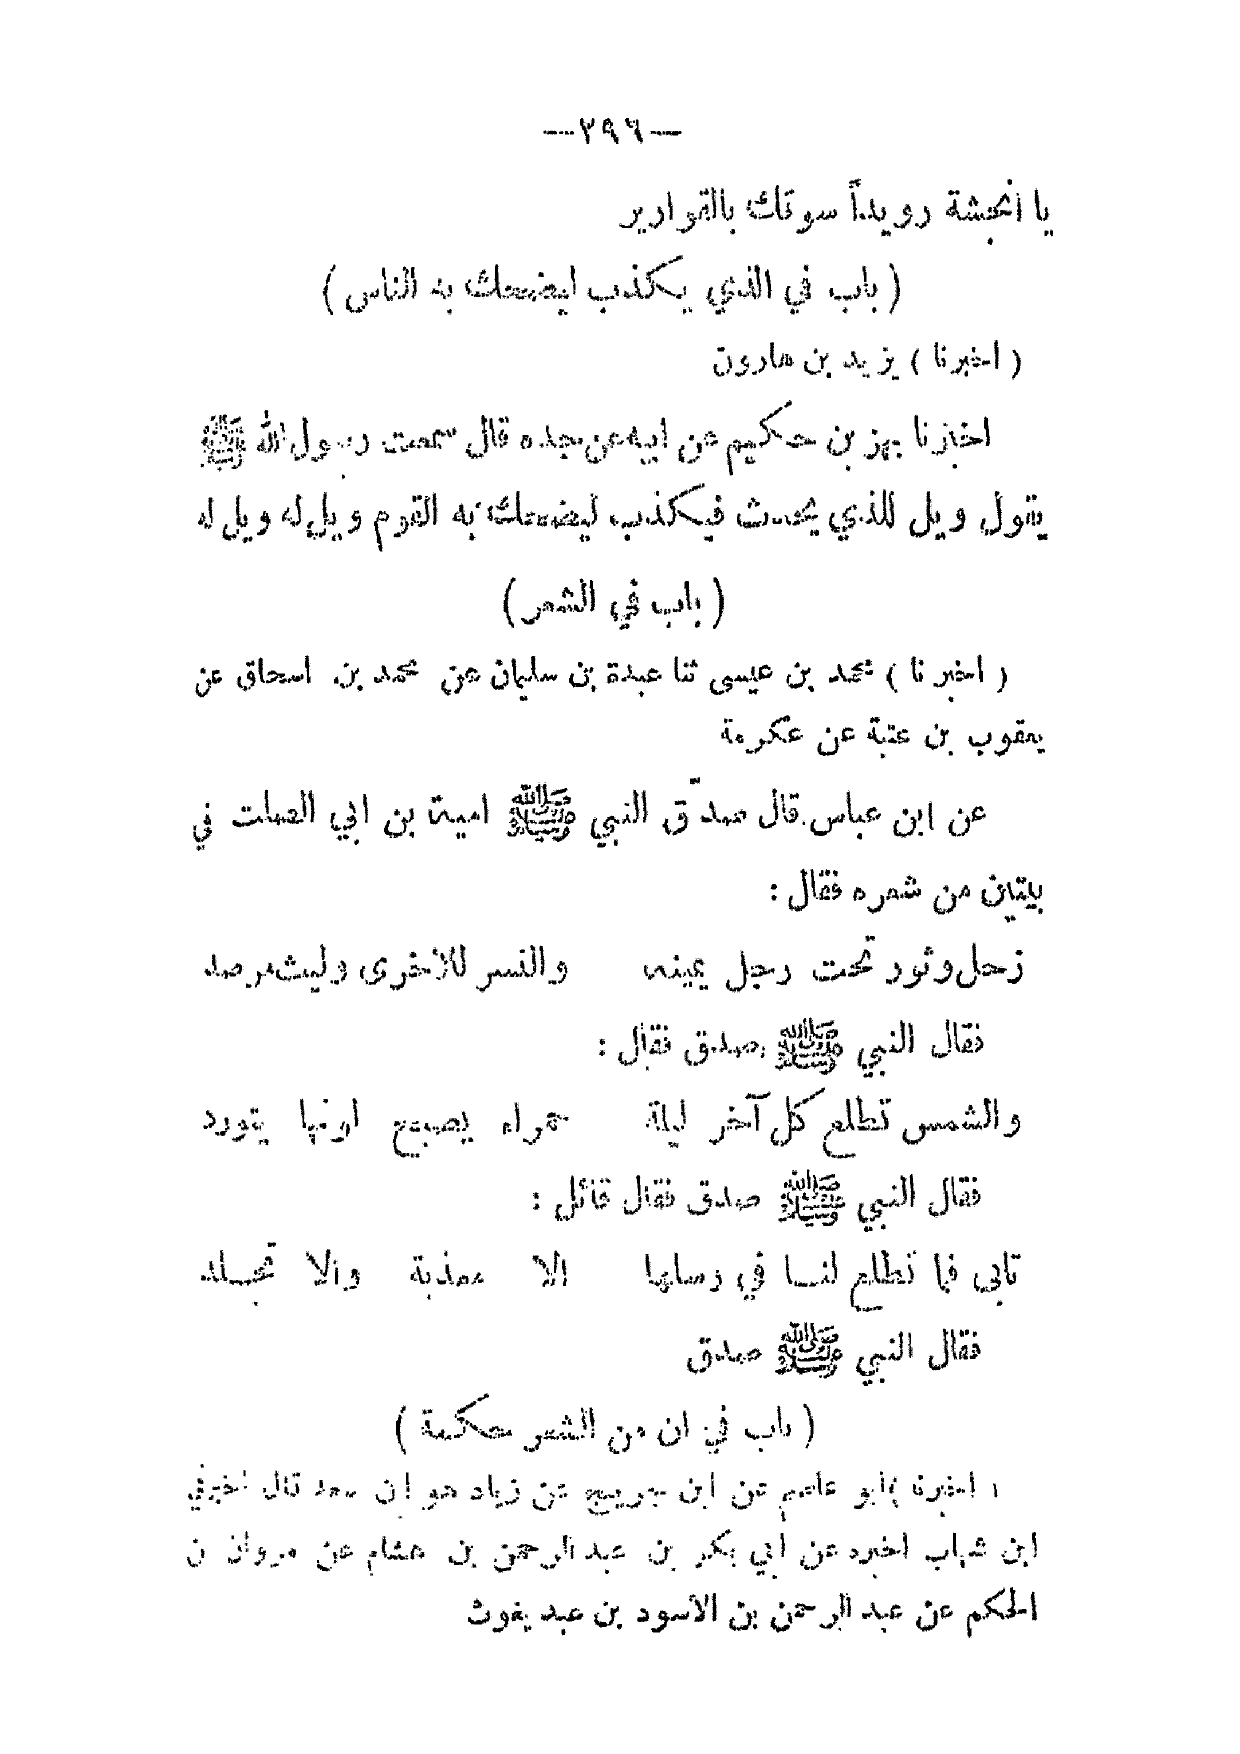 —٢٩٦—
يا انجشة رويداً سوقك بالقوارير
( باب في الذي يكذب ليضحك به الناس )
( اخبرنا ) يزيد بن هارون
اخبرنا بهز بن حكيم عن ابيه عن جده قال سمعت رسول الله ﷺ
يقول ويل للذي يحدث فيكذب ليضحك به القوم ويل له ويل له
( باب في الشعر )
( اخبرنا ) محمد بن عيسى ثنا عبدة بن سليمان عن محمد بن اسحاق عن
يعقوب بن عتبة عن عكرمة
عن ابن عباس قال صدّق النبي ﷺ امية بن ابي الصلت في
بيتين من شعره فقال :
زحل وثور تحت رجل يمينه والنسر للاخرى وليث مرصد
فقال النبي ﷺ صدق فقال :
والشمس تطلع كل آخر ليلة حمراء يصبح لونها يتورد
فقال النبي ﷺ صدق فقال قائل :
تابى فما تطلع لنا في رسلها الا معذبة والا تجلد
فقال النبي ﷺ صدق
( باب في ان من الشعر حكمة )
( اخبرنا ) ابو عاصم عن ابن جريج عن زياد هو ان سعد قال اخبرني
ابن شهاب اخبره عن أبي بكر بن عبد الرحمن بن هشام عن مروان ن
الحكم عن عبد الرحمن بن الاسود بن عبد يغوث